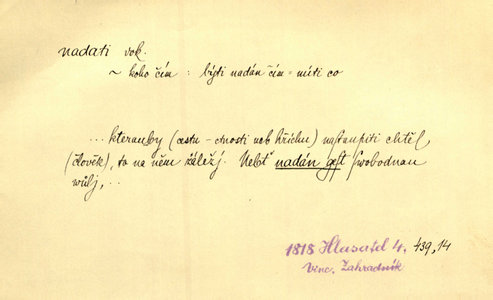 nadati dok.
~ koho čím : býti nadán čím = míti co
... kterauby (cestu - ctnosti neb hříchu) nastaupiti chtěl
(člověk), to na něm záležj. Nebť nadán gest swobodnau
wůlj, ..
1818 Hlasatel 4, 439,14
Venc. Zahradník